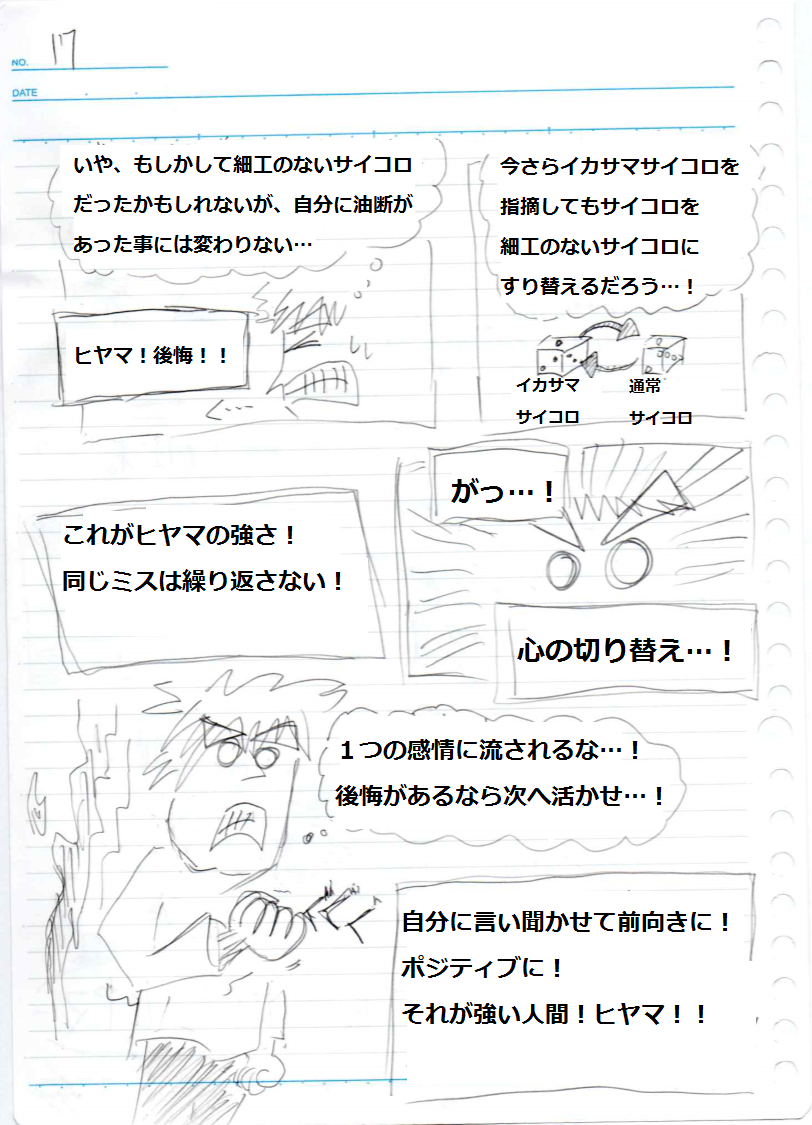 NO. 17
DATE
今さらイカサマサイコロを
指摘してもサイコロを
細工のないサイコロに
すり替えるだろう…！
イカサマ
サイコロ
通常
サイコロ
いや、もしかして細工のないサイコロ
だったかもしれないが、自分に油断が
あった事には変わりない…
ヒヤマ！後悔！！
がっ…！
心の切り替え…！
これがヒヤマの強さ！
同じミスは繰り返さない！
１つの感情に流されるな…！
後悔があるなら次へ活かせ…！
自分に言い聞かせて前向きに！
ポジティブに！
それが強い人間！ヒヤマ！！